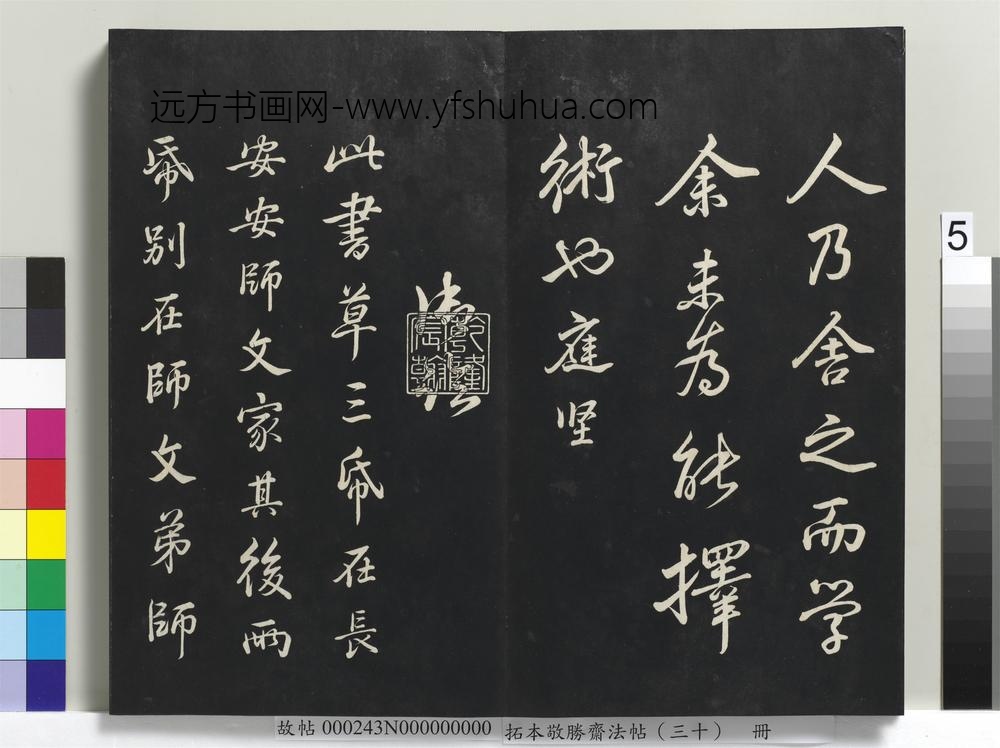 远方书画网-www.yfshuhua.com
人乃舍之而学
余未为能擇
術也庭坚
乾隆宸翰
此書草三帋在長
安安師文家其後兩
帋別在師文弟師
5
故帖 000243N000000000 拓本敬勝齋法帖（三十） 冊